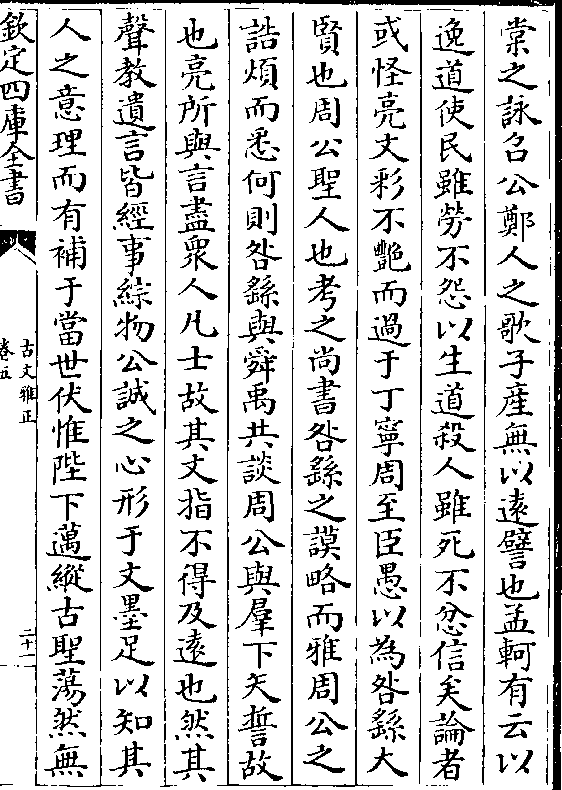 棠之詠召公鄭人之歌子産無以遠譬也孟軻有云以
逸道使民雖勞不怨以生道殺人雖死不忿信矣論者
或怪亮文彩不艷而過于丁寧周至臣愚以為咎繇大
賢也周公聖人也考之尚書咎繇之謨略而雅周公之
誥煩而悉何則咎繇與舜禹共談周公與羣下矢誓故
也亮所與言盡衆人凡士故其文指不得及逺也然其
聲教遺言皆經事綜物公誠之心形于文墨足以知其
人之意理而有補于當世伏惟陛下邁縱古聖蕩然無
欽定四庫全書
古文雅正
卷五
二十二